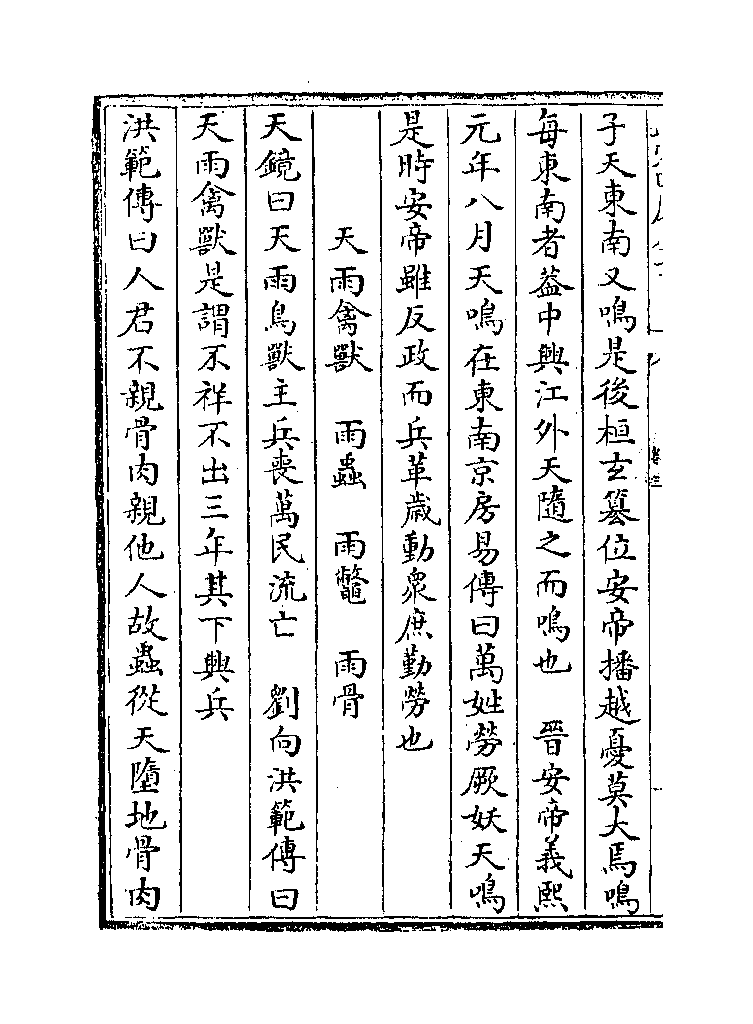 子天東南又鳴是後桓玄篡位安帝播越憂莫大焉鳴
每東南者葢中興江外天隨之而鳴也　晉安帝義熙
元年八月天鳴在東南京房易傳曰萬姓勞厥妖天鳴
是時安帝雖反政而兵革歲動衆庶勤勞也
天雨禽獸　雨蟲　雨鼈　雨骨
天鏡曰天雨鳥獸主兵喪萬民流亡　劉向洪範傳曰
天雨禽獸是謂不祥不出三年其下興兵
洪範傳曰人君不親骨肉親他人故蟲從天墮地骨肉